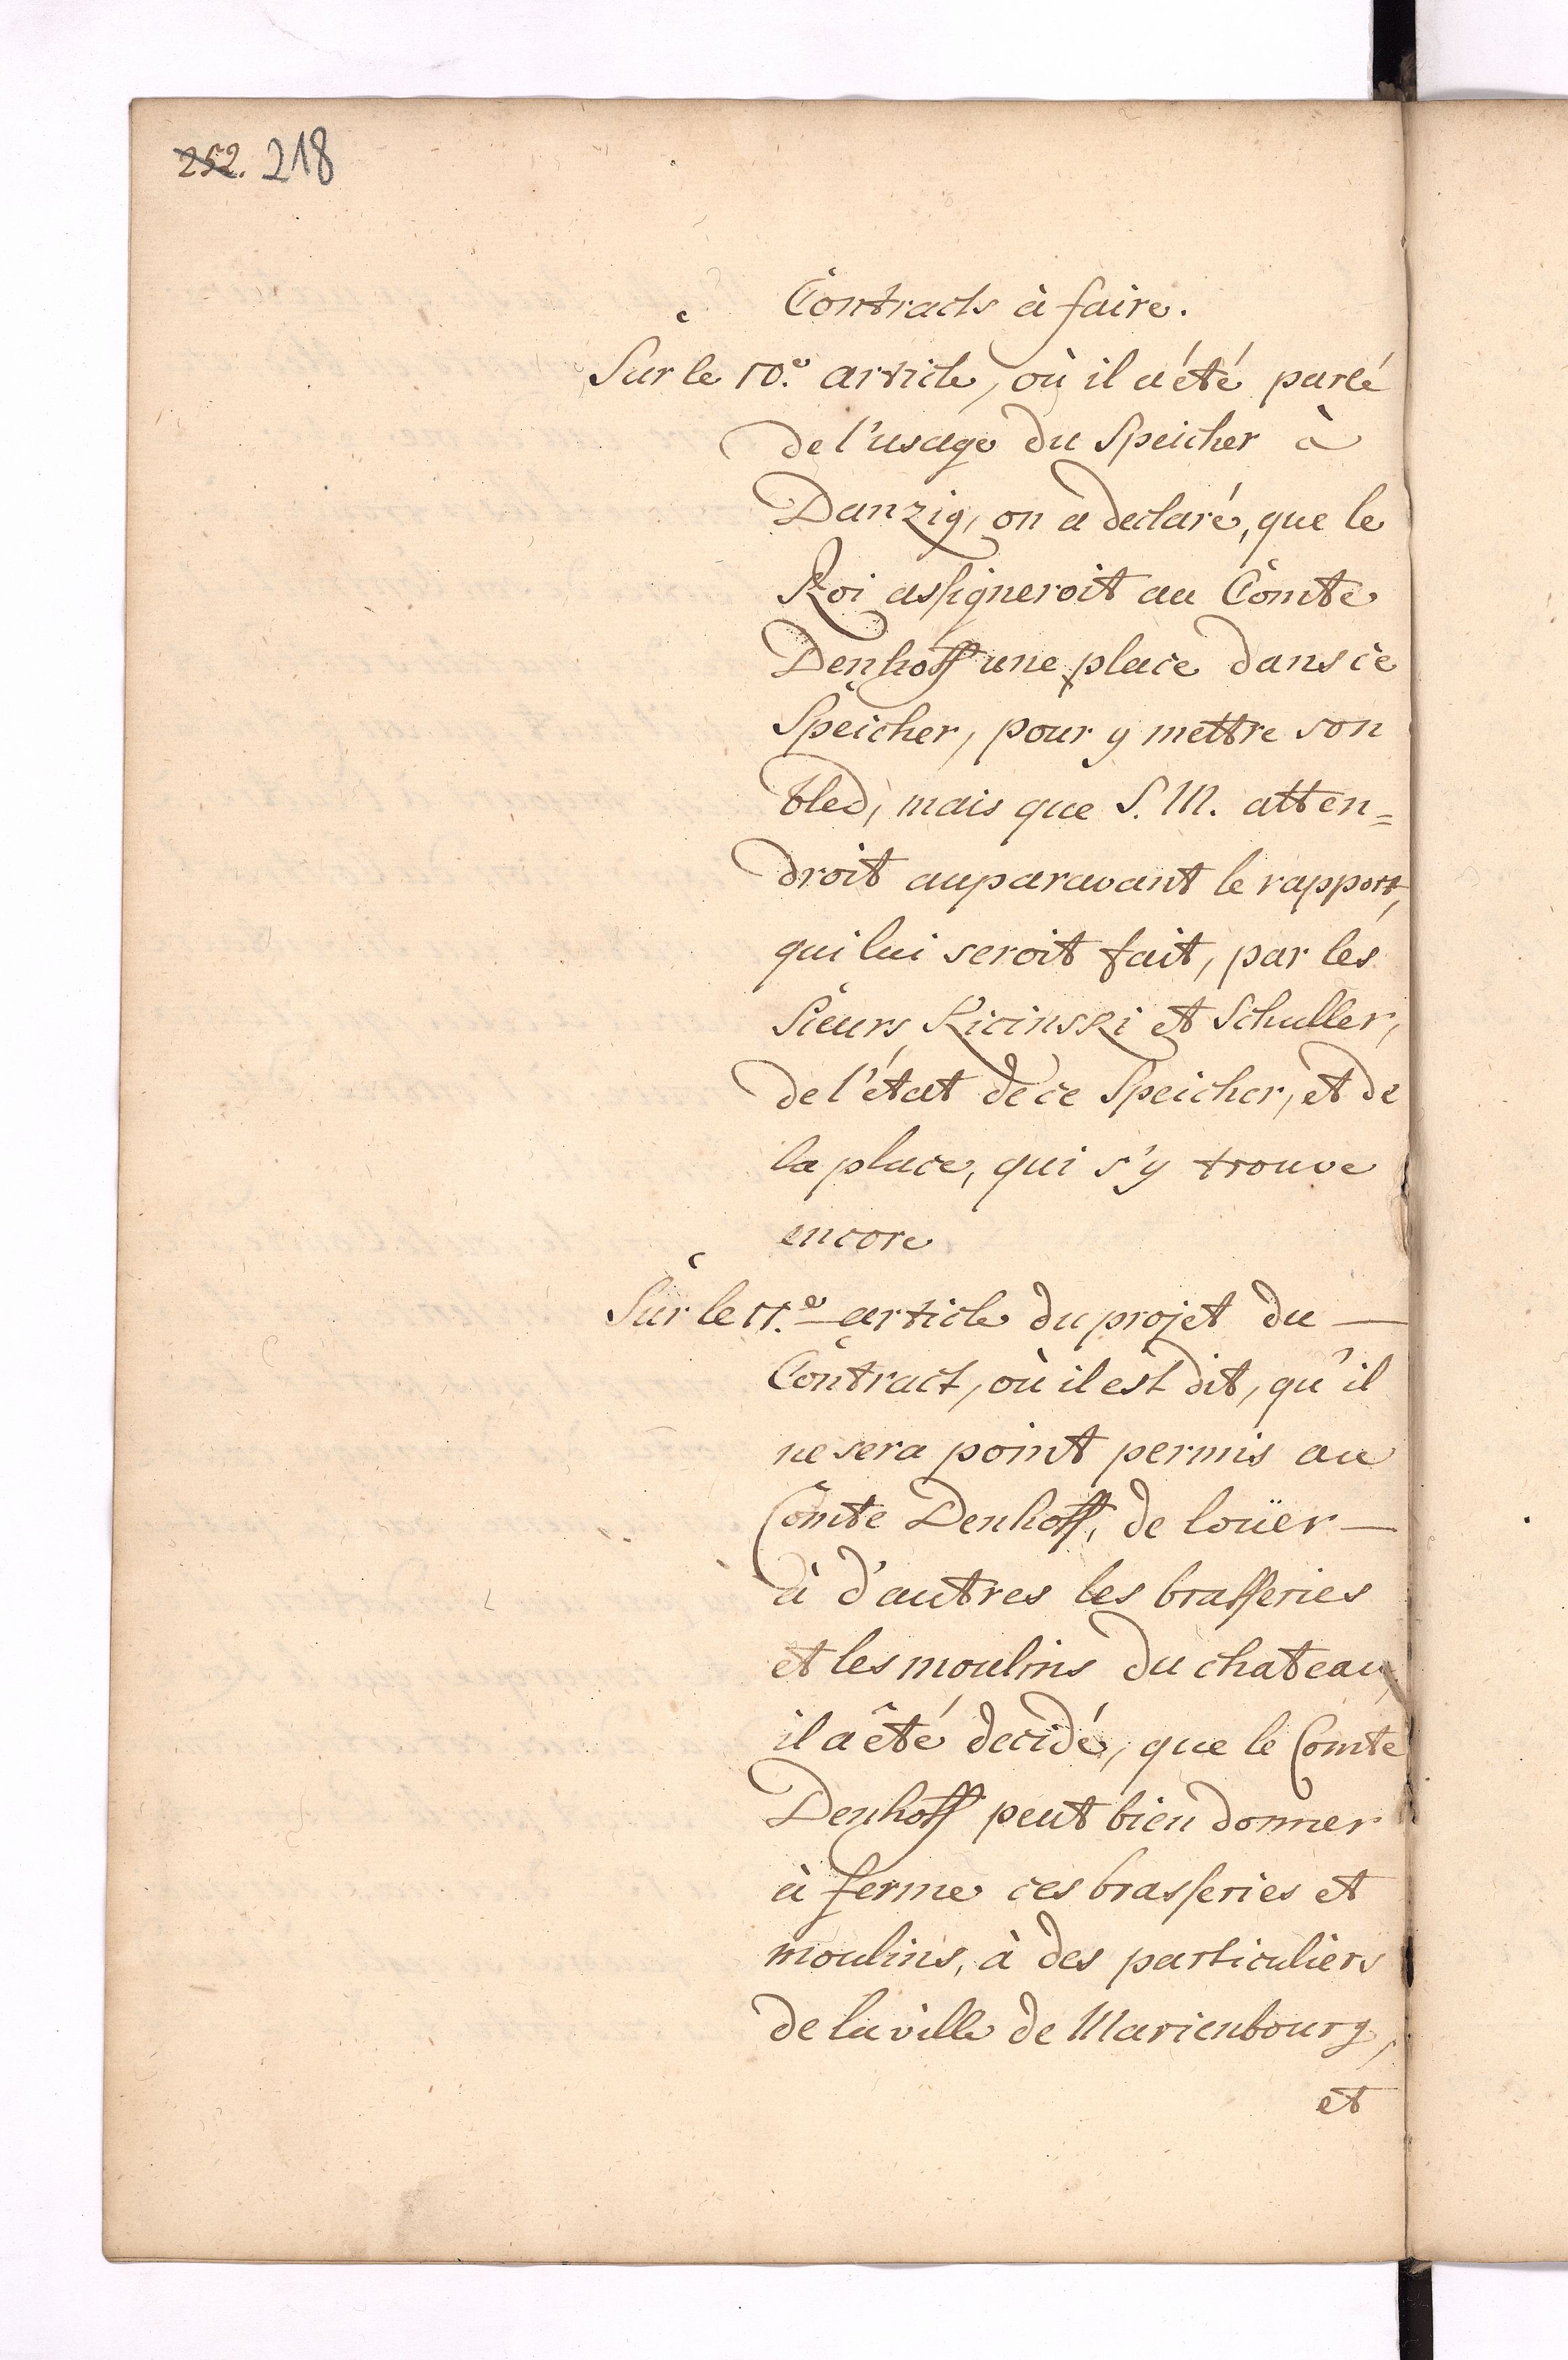 252. 218
Contracts à faire.
Sur le 10.e article, où il a été parlé
de l'usage du Speicher à
Danzig, on a declaré, que le
Roi assigneroit au Comte
Denhoff une place dans ce
Speicher, pour y mettre son
bled, mais que S. M. atten=
droit auparavant le rapport,
qui lui seroit fait, par les
Sieurs Kicinski et Schuller,
de l'état de ce Speicher, et de
la place, qui s'y trouve
encore
Sur le 11.e article du projet du —
Contract, où il est dit, qu'il
ne sera point permis au
Comte Denhoff, de loüer —
à d'autres les brasseries
et les moulins du chateau,
il a été decidé, que le Comte
Denhoff peut bien donner
à ferme ces brasseries et
moulins, à des particuliers
de la ville de Marienbourg,
et